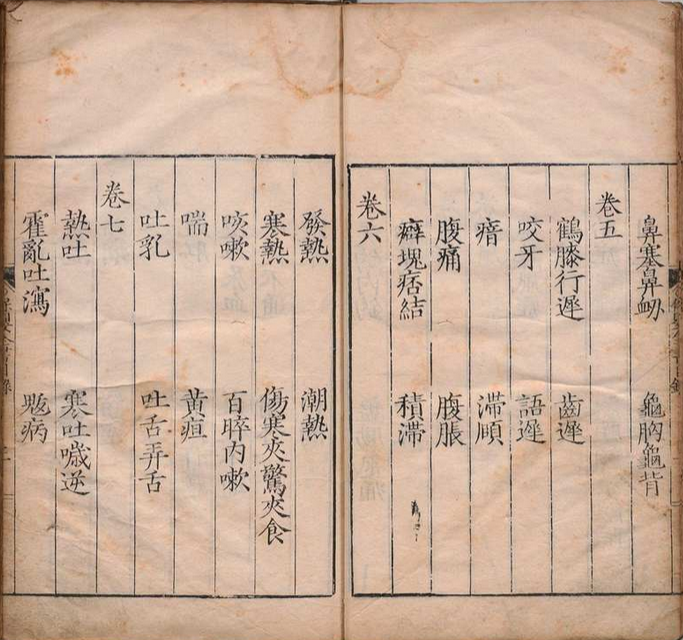 鼻塞鼻衂 龜胸龜背
卷五
鶴膝行遲 齒遲
咬牙 語遲
瘖 滯頤
腹痛 腹脹
癖塊痞結 積滯
卷六
發熱 潮熱
寒熱 傷寒夾驚夾食
咳嗽 百晬內嗽
喘 黄疸
吐乳 吐舌弄舌
卷七
熱吐 寒吐噦逆
霍亂吐瀉 鬾病